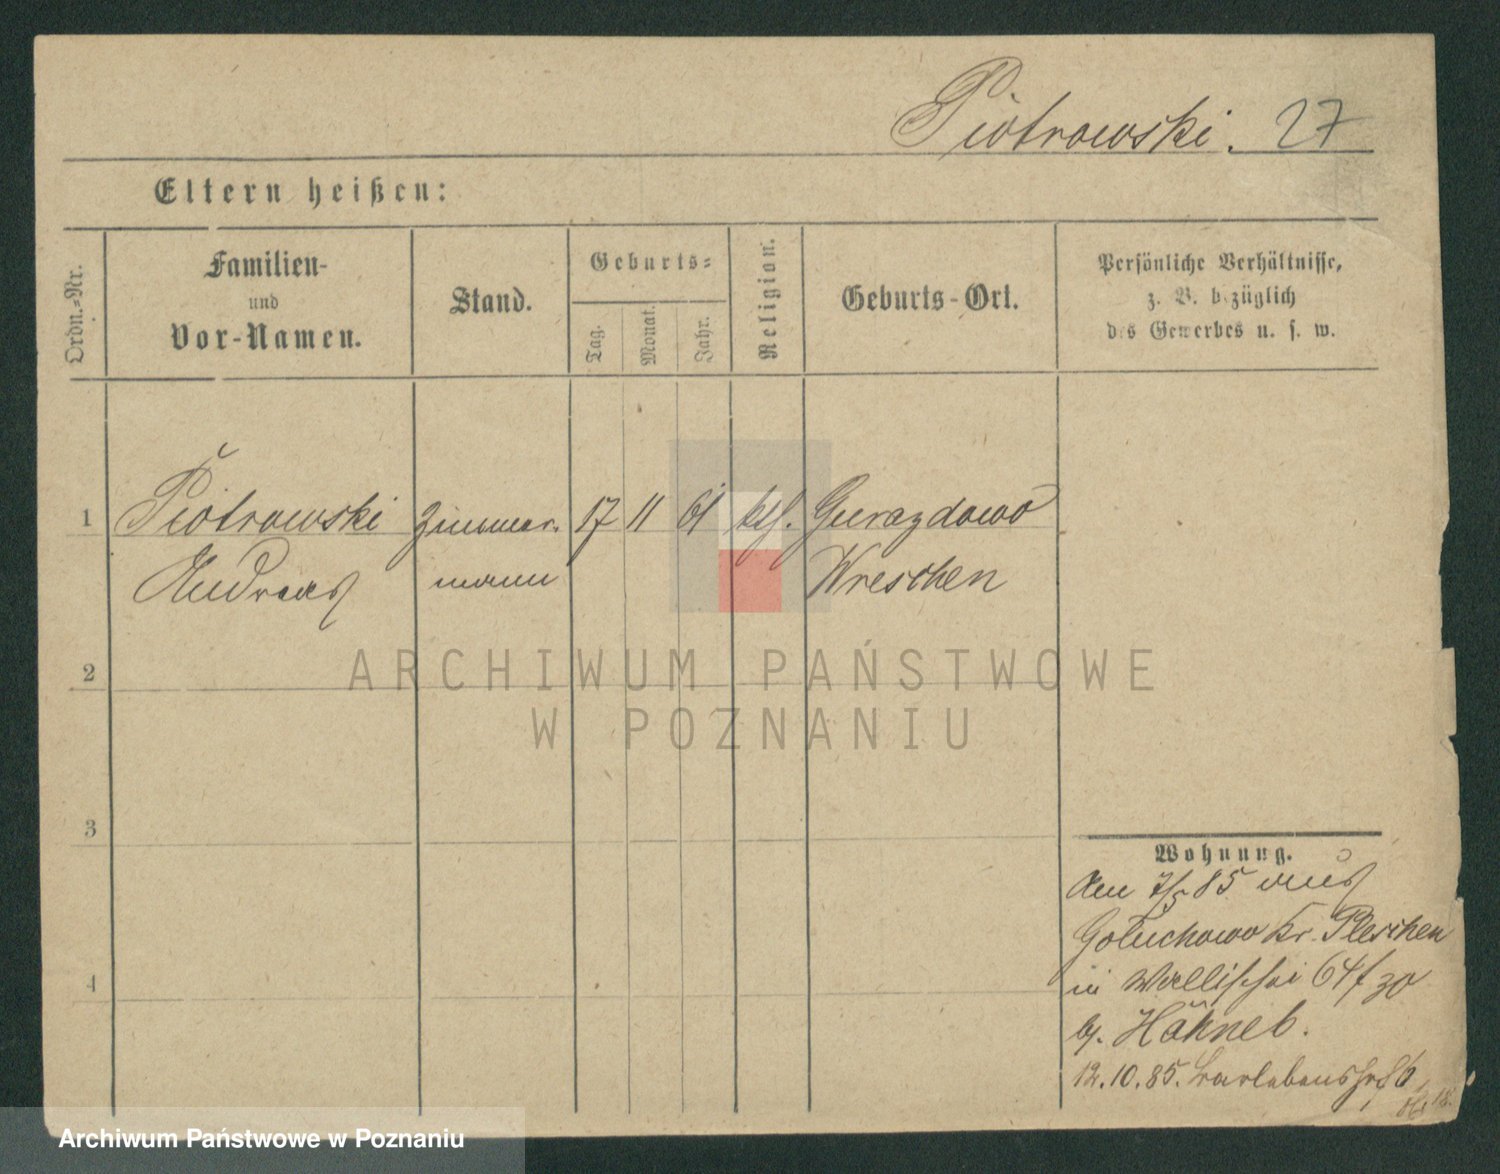 Piotrowski. 27
Eltern heißen:
Ordn.-Nr.
Familien-
und
Vor-Namen.
Stand.
Geburts-
Tag.
Monat.
Jahr.
Religion.
Geburts-Ort.
Persönliche Verhältnisse,
z. B. bezüglich
des Gewerbes u. s. w.
1 Piotrowski Zimmer- 17 11 61 kth. Gurazdowo
Andreas mann Wreschen
2
3
4
ARCHIWUM PAŃSTWOWE
W POZNANIU
Wohnung.
Am 7/5 85 aus
Gołuchowo Kr. Pleschen
in Wallischei 64/
b. Hähneb.
12.10.85.
Archiwum Państwowe w Poznaniu